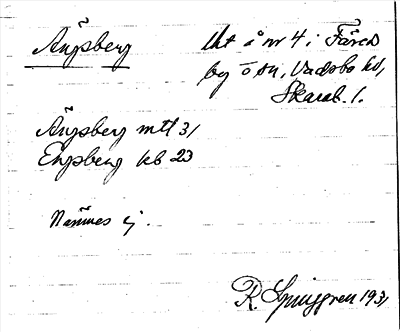 Ängsberg
Uht å nr 4 i Färed
by o sn, Vadsbo hd,
Skarab. l.
Ängsberg mtl 31
Engsberg kb 23
Nämnes ej.
R. Ljunggren 1931